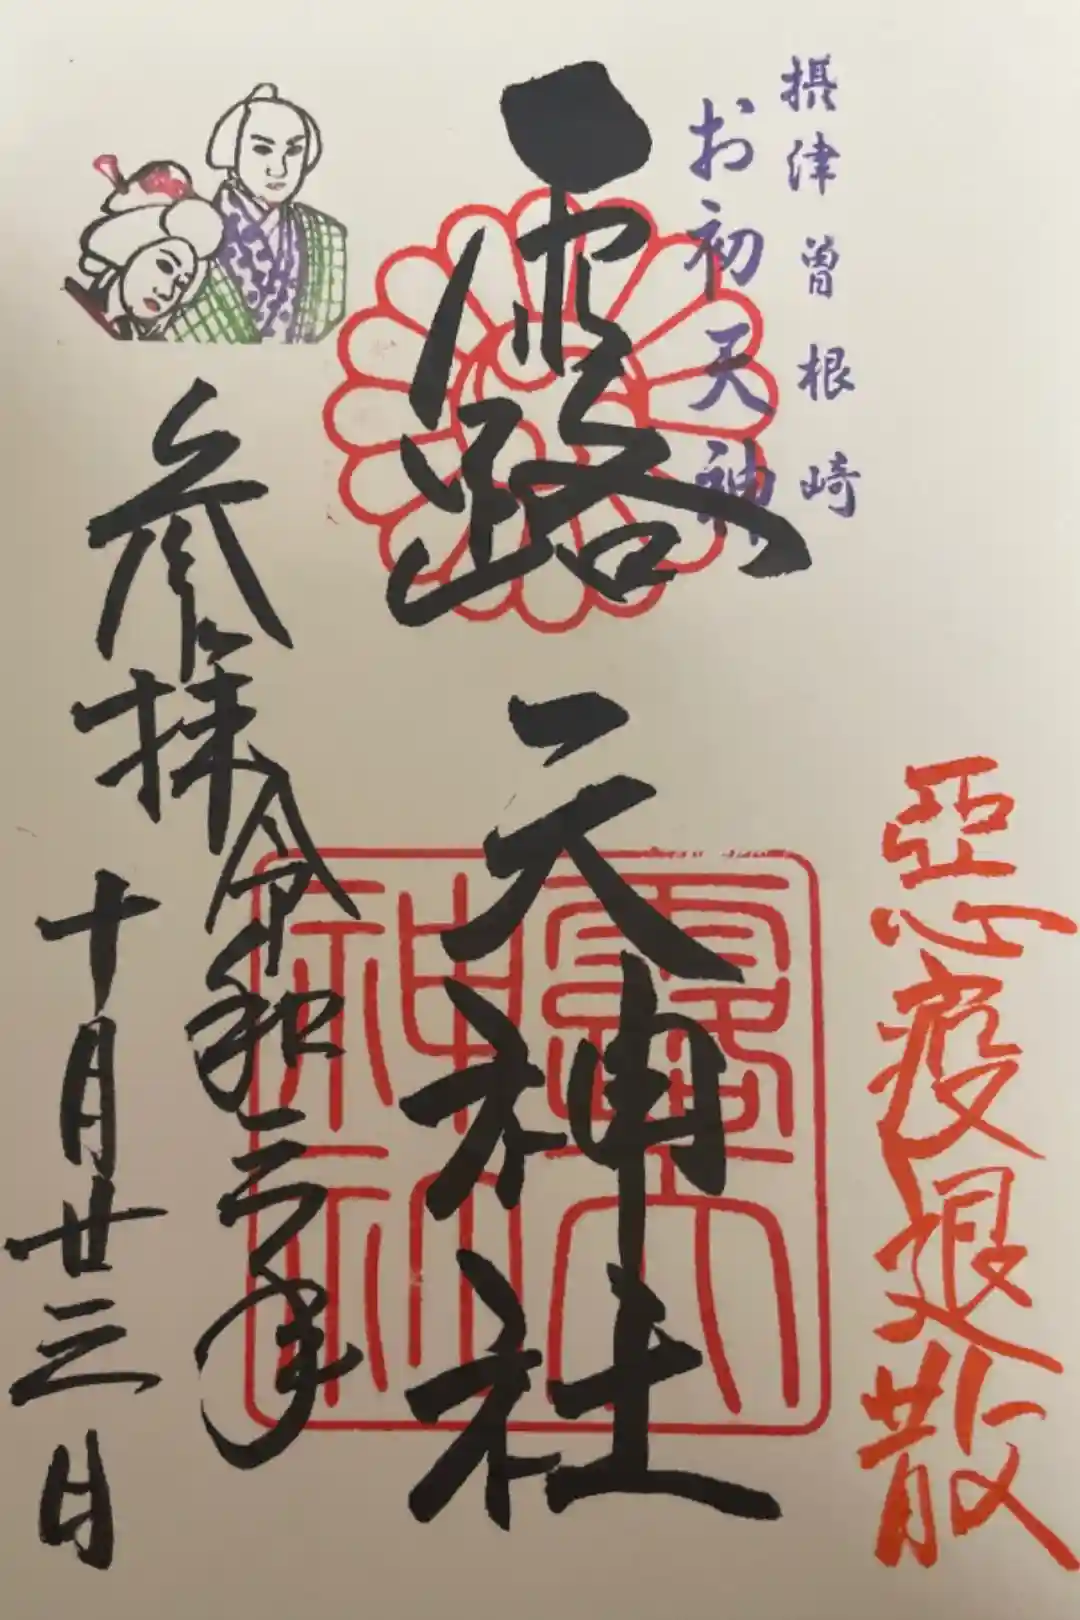 摂津曽根崎
お初天神
惡疫退散
露天神社
露天神社
参拝令和三年
十月廿三日